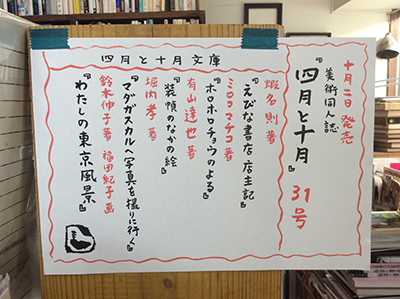 四月と十月文庫
十月二日発売
美術同人誌
『四月と十月』
31号
蝦名則著
『えびな書店店主記』
ミロコマチコ著
『ホロホロチョウのよる』
有山達也著
『装幀のなかの絵』
堀内孝著
『マダガスカルへ写真を撮りに行く』
鈴木伸子著 福田紀子画
『わたしの東京風景』